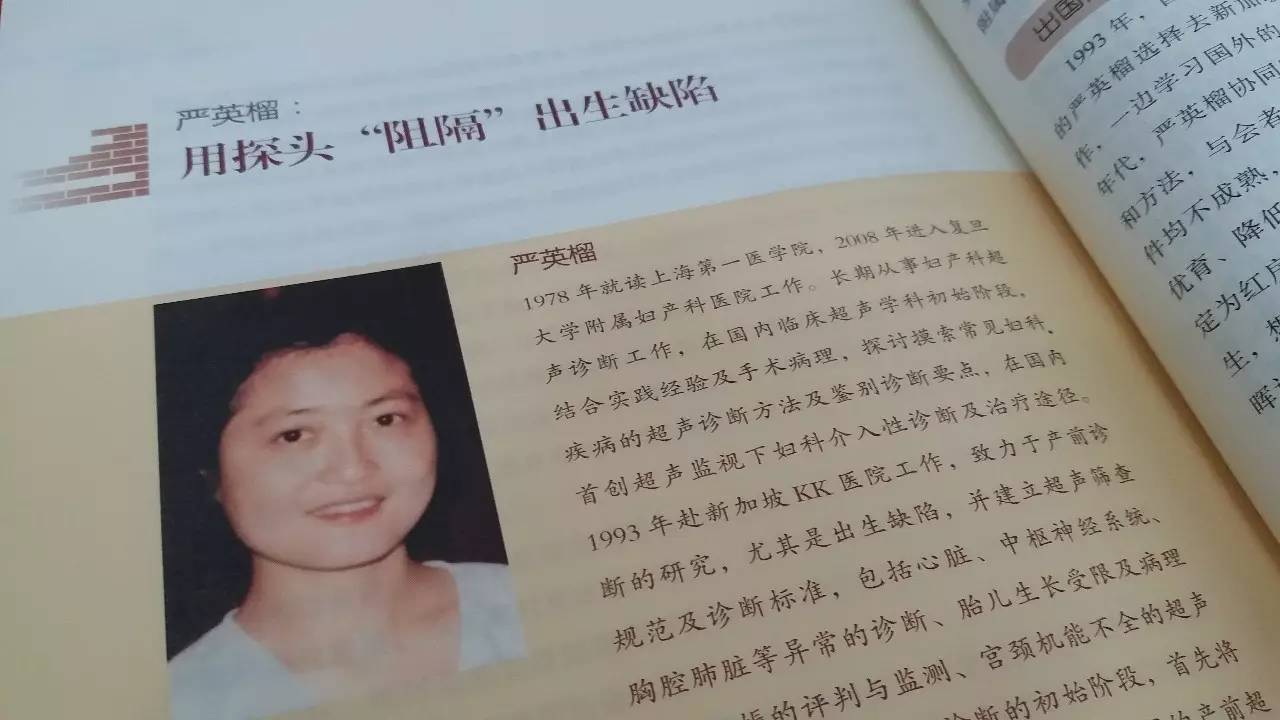 严英榴：
用探头“阻隔”出生缺陷
严英榴
1978 年就读上海第一医学院，2008 年进入复旦
大学附属妇产科医院工作。长期从事妇产科超
声诊断工作，在国内临床超声学科初始阶段，
结合实践经验及手术病理，探讨摸索常见妇科
疾病的超声诊断方法及鉴别诊断要点，在国内
首创超声监视下妇科介入性诊断及治疗途径。
1993 年赴新加坡 KK 医院工作，致力于产前诊
断的研究，尤其是出生缺陷，并建立超声筛查
规范及诊断标准，包括心脏、中枢神经系统、
胸腔肺脏等异常的诊断、胎儿生长受限及病理
的评判与监测、宫颈机能不全的超声
诊断的初始阶段，首先将
产前超
出国
1993 年，
的严英榴选择去新加
作，一边学习国外的
年代，严英榴协同
和方法，与会者
件均不成熟，
优育、降低
定为红房
生，想